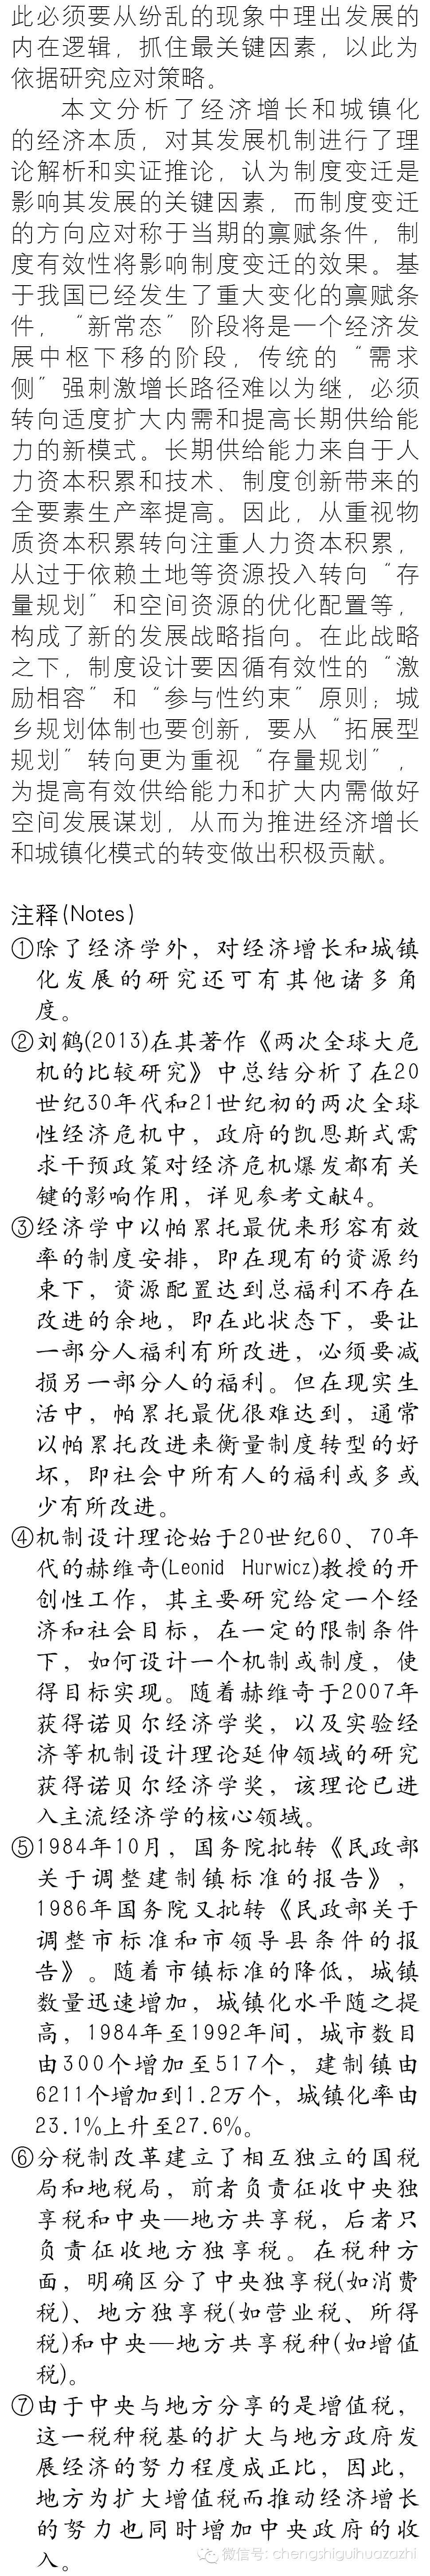 此必须要从纷乱的现象中理出发展的
内在逻辑，抓住最关键因素，以此为
依据研究应对策略。
本文分析了经济增长和城镇化
的经济本质，对其发展机制进行了理
论解析和实证推论，认为制度变迁是
影响其发展的关键因素，而制度变迁
的方向应对称于当期的禀赋条件，制
度有效性将影响制度变迁的效果。基
于我国已经发生了重大变化的禀赋条
件，“新常态”阶段将是一个经济发
展中枢下移的阶段，传统的“需求
侧”强刺激增长路径难以为继，必须
转向适度扩大内需和提高长期供给能
力的新模式。长期供给能力来自于人
力资本积累和技术、制度创新带来的
全要素生产率提高。因此，从重视物
质资本积累转向注重人力资本积累，
从过于依赖土地等资源投入转向“存
量规划”和空间资源的优化配置等，
构成了新的发展战略指向。在此战略
之下，制度设计要因循有效性的“激
励相容”和“参与性约束”原则；城
乡规划体制也要创新，要从“拓展型
规划”转向更为重视“存量规划”，
为提高有效供给能力和扩大内需做好
空间发展谋划，从而为推进经济增长
和城镇化模式的转变做出积极贡献。
注释(Notes)
①除了经济学外，对经济增长和城镇
化发展的研究还可有其他诸多角
度。
②刘鹤(2013)在其著作《两次全球大危
机的比较研究》中总结分析了在20
世纪30年代和21世纪初的两次全球
性经济危机中，政府的凯恩斯式需
求干预政策对经济危机爆发都有关
键的影响作用，详见参考文献4。
③经济学中以帕累托最优来形容有效
率的制度安排，即在现有的资源约
束下，资源配置达到总福利不存在
改进的余地，即在此状态下，要让
一部分人福利有所改进，必须要减
损另一部分人的福利。但在现实生
活中，帕累托最优很难达到，通常
以帕累托改进来衡量制度转型的好
坏，即社会中所有人的福利或多或
少有所改进。
④机制设计理论始于20世纪60、70年
代的赫维奇(Leonid Hurwicz)教授的开
创性工作，其主要研究给定一个经
济和社会目标，在一定的限制条件
下，如何设计一个机制或制度，使
得目标实现。随着赫维奇于2007年
获得诺贝尔经济学奖，以及实验经
济等机制设计理论延伸领域的研究
获得诺贝尔经济学奖，该理论已进
入主流经济学的核心领域。
⑤1984年10月，国务院批转《民政部
关于调整建制镇标准的报告》，
1986年国务院又批转《民政部关于
调整市标准和市领导县条件的报
告》。随着市镇标准的降低，城镇
数量迅速增加，城镇化水平随之提
高，1984年至1992年间，城市数目
由300个增加至517个，建制镇由
6211个增加到1.2万个，城镇化率由
23.1%上升至27.6%。
⑥分税制改革建立了相互独立的国税
局和地税局，前者负责征收中央独
享税和中央—地方共享税，后者只
负责征收地方独享税。在税种方
面，明确区分了中央独享税(如消费
税)、地方独享税(如营业税、所得
税)和中央—地方共享税种(如增值
税)。
⑦由于中央与地方分享的是增值税，
这一税种税基的扩大与地方政府发
展经济的努力程度成正比，因此，
地方为扩大增值税而推动经济增长
的努力也同时增加中央政府的收
入。
微信号: chengshiguihuazazhi